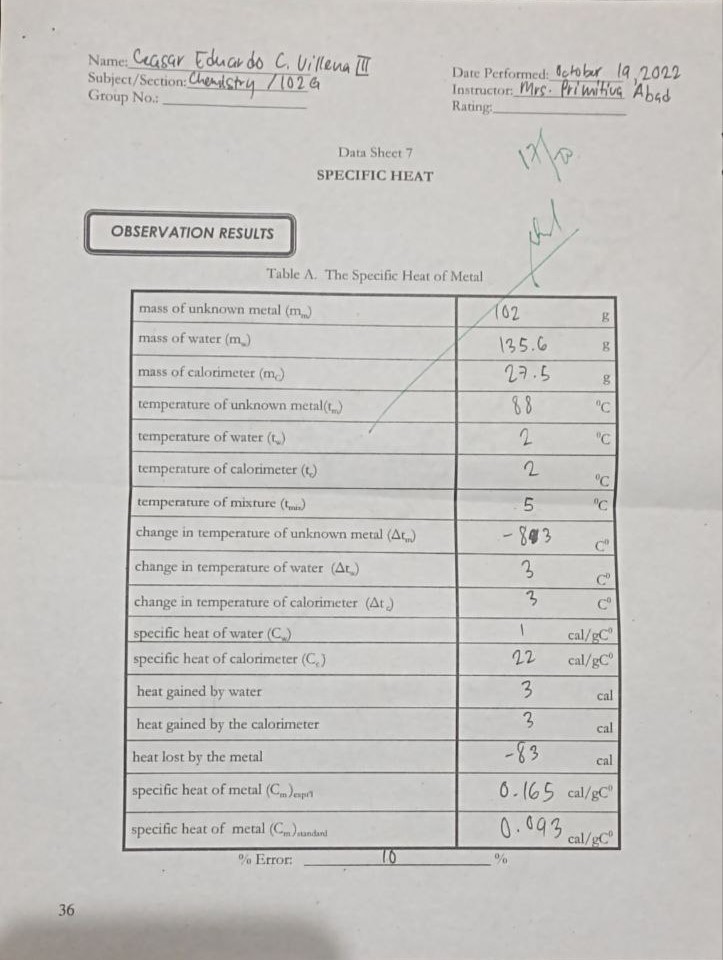 Name: Ceasar Eduardo C. Villena III
Date Performed: October 19, 2022
Subject/Section: Chemistry / 102 G
Instructor: Mrs. Primitiva Abad
Group No.:
Rating:
Data Sheet 7
SPECIFIC HEAT
OBSERVATION RESULTS
Table A. The Specific Heat of Metal
mass of unknown metal (mm) 102 g
mass of water (mw) 135.6 g
mass of calorimeter (mc) 27.5 g
temperature of unknown metal(tm) 88 °C
temperature of water (tw) 2 °C
temperature of calorimeter (tc) 2 °C
temperature of mixture (tmix) 5 °C
change in temperature of unknown metal (Δtm) -83 C°
change in temperature of water (Δtw) 3 C°
change in temperature of calorimeter (Δtc) 3 C°
specific heat of water (Cw) 1 cal/gC°
specific heat of calorimeter (Cc) 22 cal/gC°
heat gained by water 3 cal
heat gained by the calorimeter 3 cal
heat lost by the metal -83 cal
specific heat of metal (Cm)exprt'l 0.165 cal/gC°
specific heat of metal (Cm)standard 0.093 cal/gC°
% Error: 10 %
36